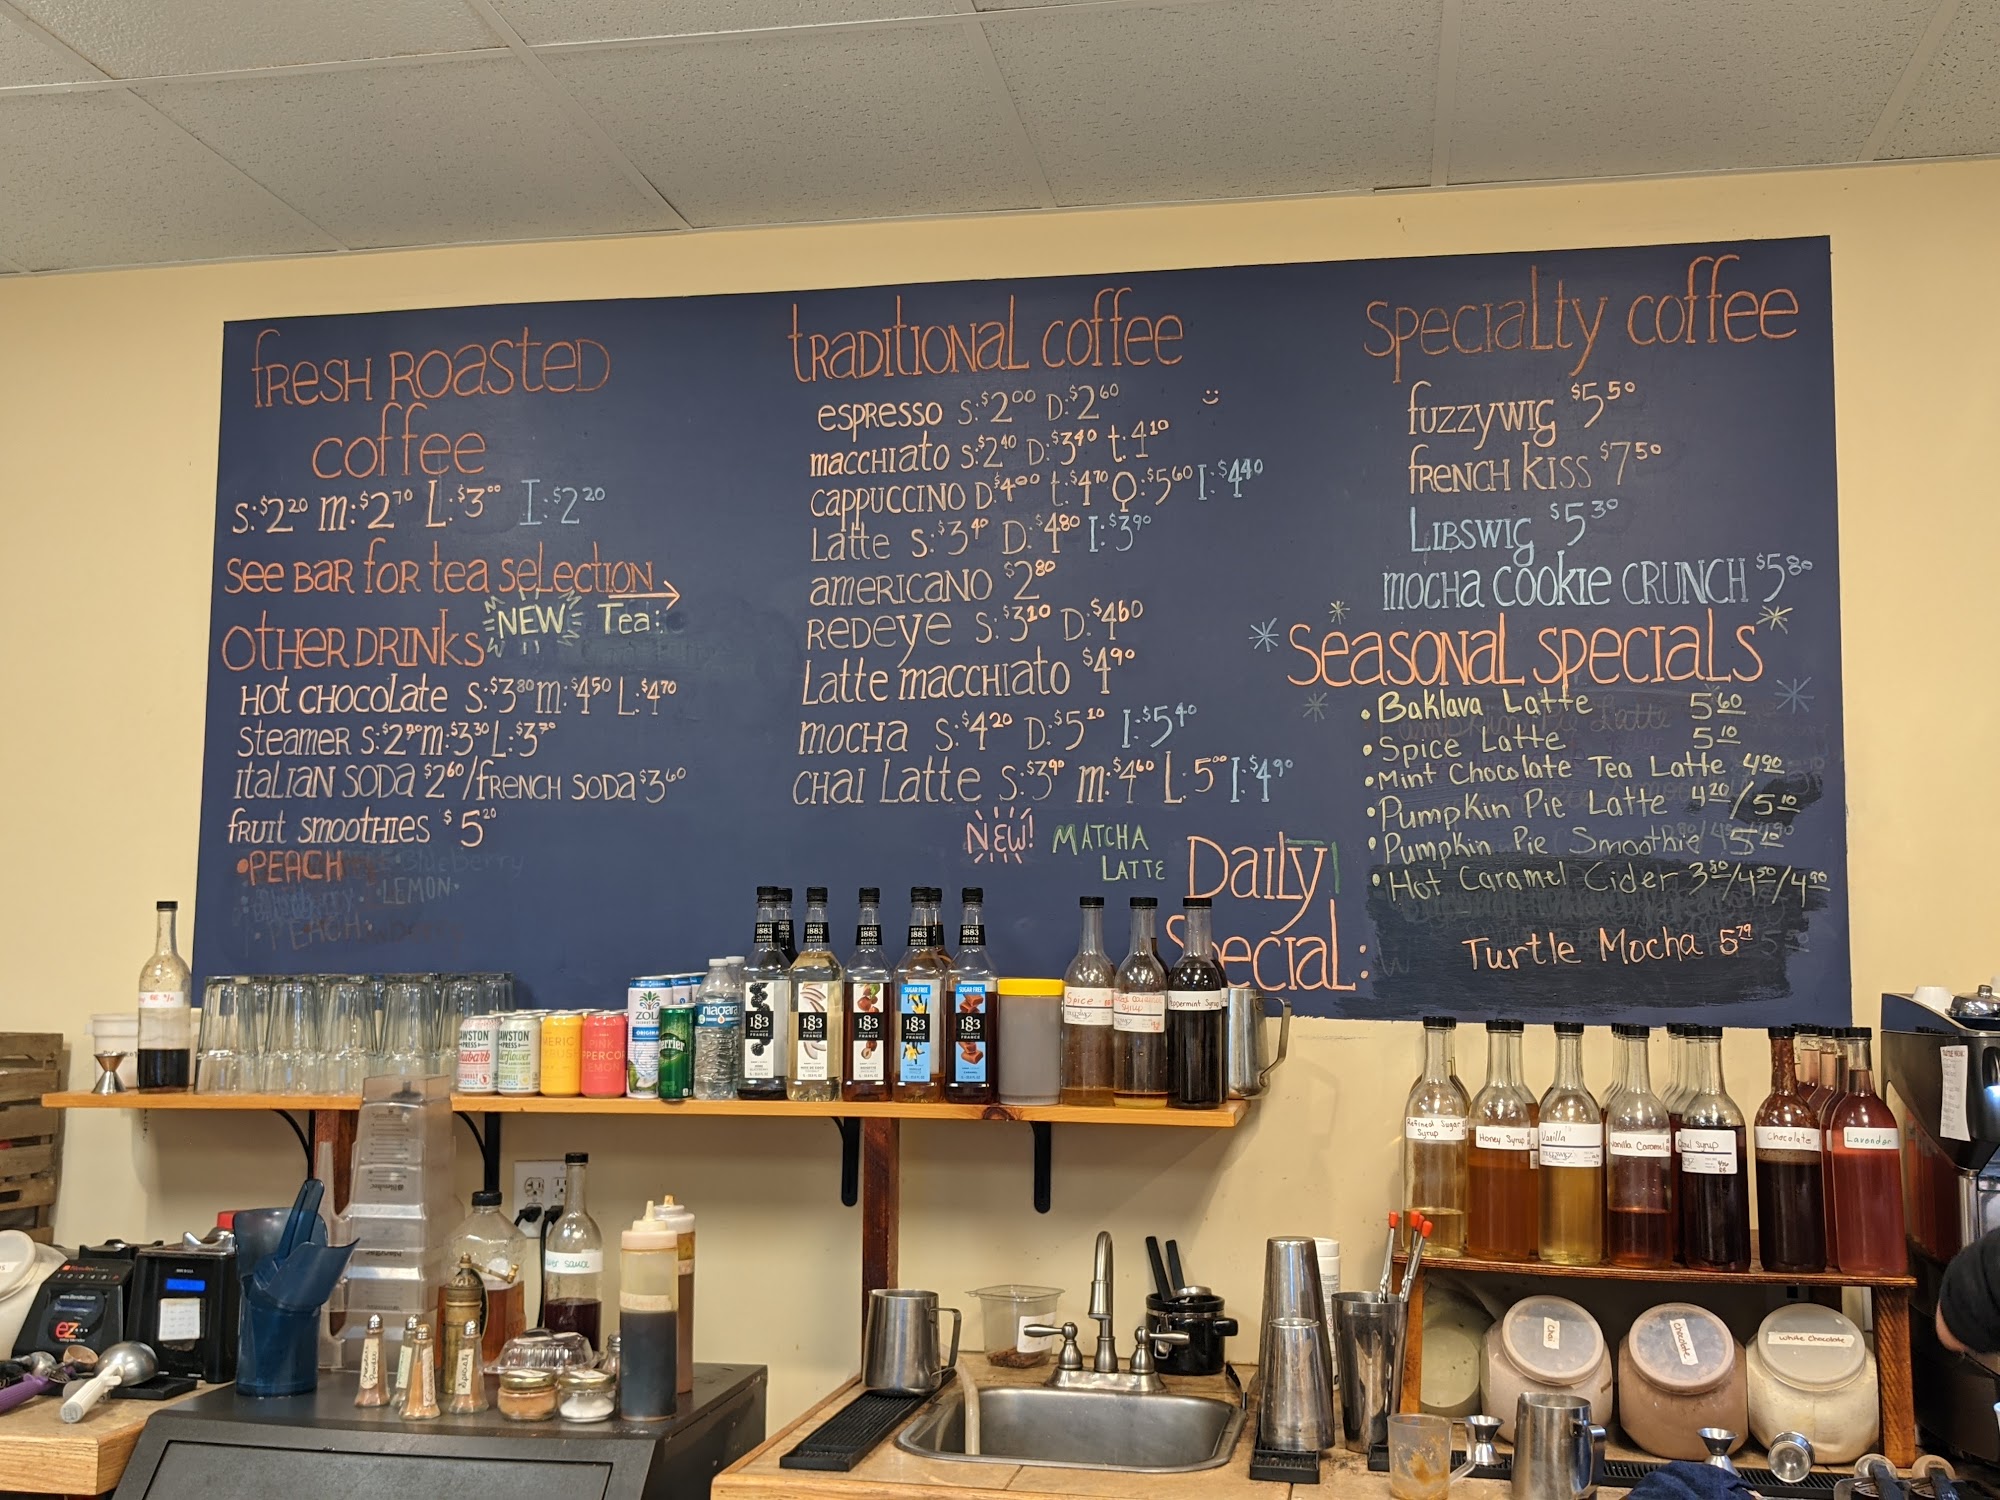 fresh roasted
coffee
S:$2²⁰ m:$2⁷⁰ L:$3⁰⁰ I:$2²⁰
See bar for tea selection
NEW Tea:
Other Drinks
Hot Chocolate S:$3⁸⁰ m:$4⁵⁰ L:$4⁷⁰
Steamer S:$2⁹⁰ m:$3³⁰ L:$3⁷⁰
Italian Soda $2⁶⁰/French Soda $3⁶⁰
fruit smoothies $5²⁰
•PEACH
Blueberry
•LEMON•
PEACH
traditional coffee
espresso S:$2⁰⁰ D:$2⁶⁰
macchiato S:$2⁴⁰ D:$3⁴⁰ t:4¹⁰
cappuccino D:$4⁰⁰ t:$4⁷⁰ Q:$5⁶⁰ I:$4⁴⁰
Latte S:$3⁴⁰ D:$4⁸⁰ I:$3⁹⁰
americano $2⁸⁰
Redeye S:$3¹⁰ D:$4⁶⁰
Latte macchiato $4⁹⁰
mocha S:$4²⁰ D:$5¹⁰ I:$5⁴⁰
Chai Latte S:$3⁹⁰ m:$4⁶⁰ L:5⁰⁰ I:$4⁹⁰
NEW! MATCHA
LATTE
Specialty coffee
fuzzywig $5⁵⁰
french kiss $7⁵⁰
Libswig $5³⁰
mocha cookie crunch $5⁸⁰
Seasonal specials
•Baklava Latte 5⁶⁰
•Spice Latte 5¹⁰
•Mint Chocolate Tea Latte 4⁹⁰
•Pumpkin Pie Latte 4²⁰/5¹⁰
•Pumpkin Pie Smoothie 5¹⁵
•Hot Caramel Cider 3⁸⁰/4⁵⁰/4⁹⁰
Daily
Special:
Turtle Mocha 5⁷⁹
ZOLA
ORIGINAL
niagara
1883
1883
1883
SUGAR FREE
1883
SUGAR FREE
1883
Spice
Peppermint Syrup
Refined Sugar
Syrup
Honey Syrup
Vanilla
Vanilla Caramel
Chocolate
Lavender
Chai
Chocolate
White Chocolate
ez